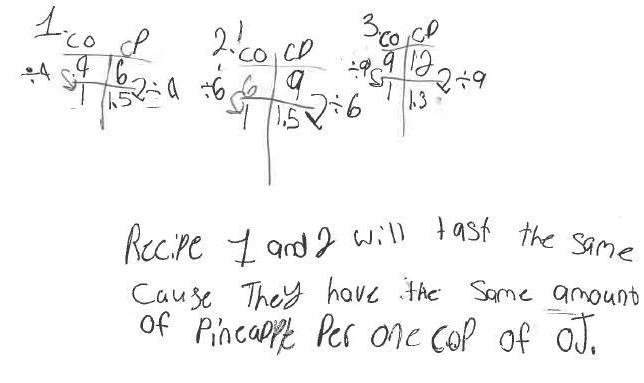 1. CO CP
÷4 4 6 ÷4
1 1.5
2. CO CP
÷6 6 9 ÷6
1 1.5
3. CO CP
÷9 9 12 ÷9
1 1.3
Recipe 1 and 2 will tast the same
Cause They have the Same amount
of Pineapple Per one cop of OJ.